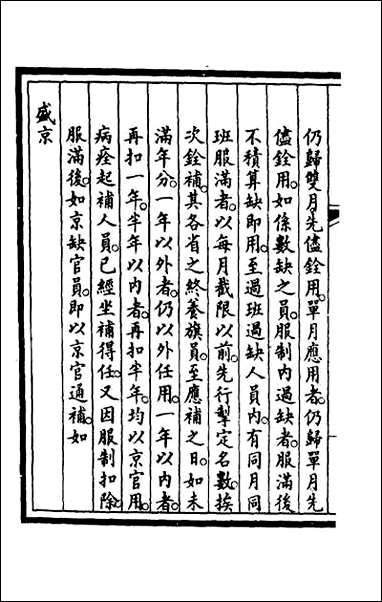 仍歸雙月先儘銓用。單月應用者。仍歸單月先
儘銓用。如係數缺之員。服制內過缺者。服滿後
不積算缺即用。至過班過缺人員內。有同月同
班服滿者。以每月截限以前。先行掣定名數。挨
次銓補。其各省之終養旗員。至應補之日。如未
滿年分。一年以外者。仍以外任用。一年以內者。
再扣一年。半年以內者。再扣半年。均以京官用。
病痊起補人員。已經坐補得任。又因服制扣除。
服滿後。如京缺官員。即以京官通補。如
盛京